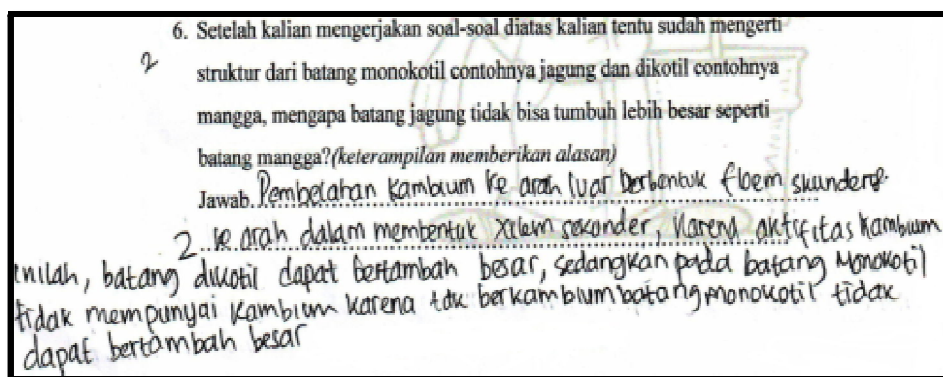 6. Setelah kalian mengerjakan soal-soal diatas kalian tentu sudah mengerti
2
struktur dari batang monokotil contohnya jagung dan dikotil contohnya
mangga, mengapa batang jagung tidak bisa tumbuh lebih besar seperti
batang mangga?(keterampilan memberikan alasan)
Jawab. Pembelahan kambium ke arah luar berbentuk floem skunders
2 ke arah dalam membentuk xilem sekonder, karena aktifitas kambium
inilah, batang dikotil dapat bertambah besar, sedangkan pada batang Monokotil
tidak mempunyai kambium karena tdk berkambium batang monokotil tidak
dapat bertambah besar